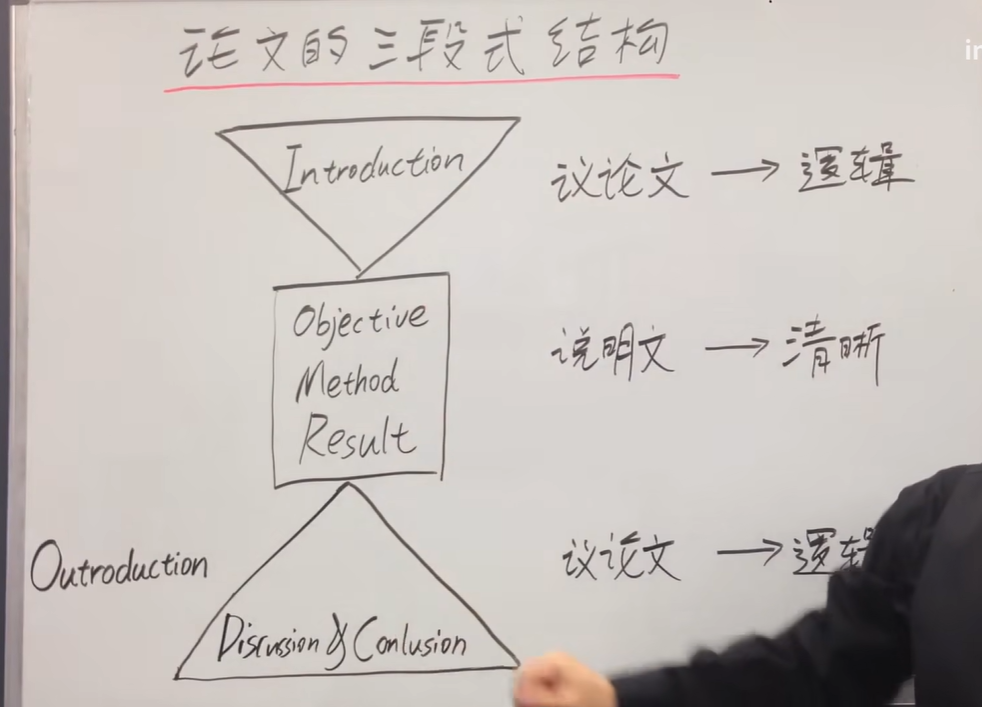 论文的三段式结构
Introduction
议论文 → 逻辑
Objective
Method
Result
说明文 → 清晰
Outroduction
Discussion & Conlusion
议论文 → 逻辑
in